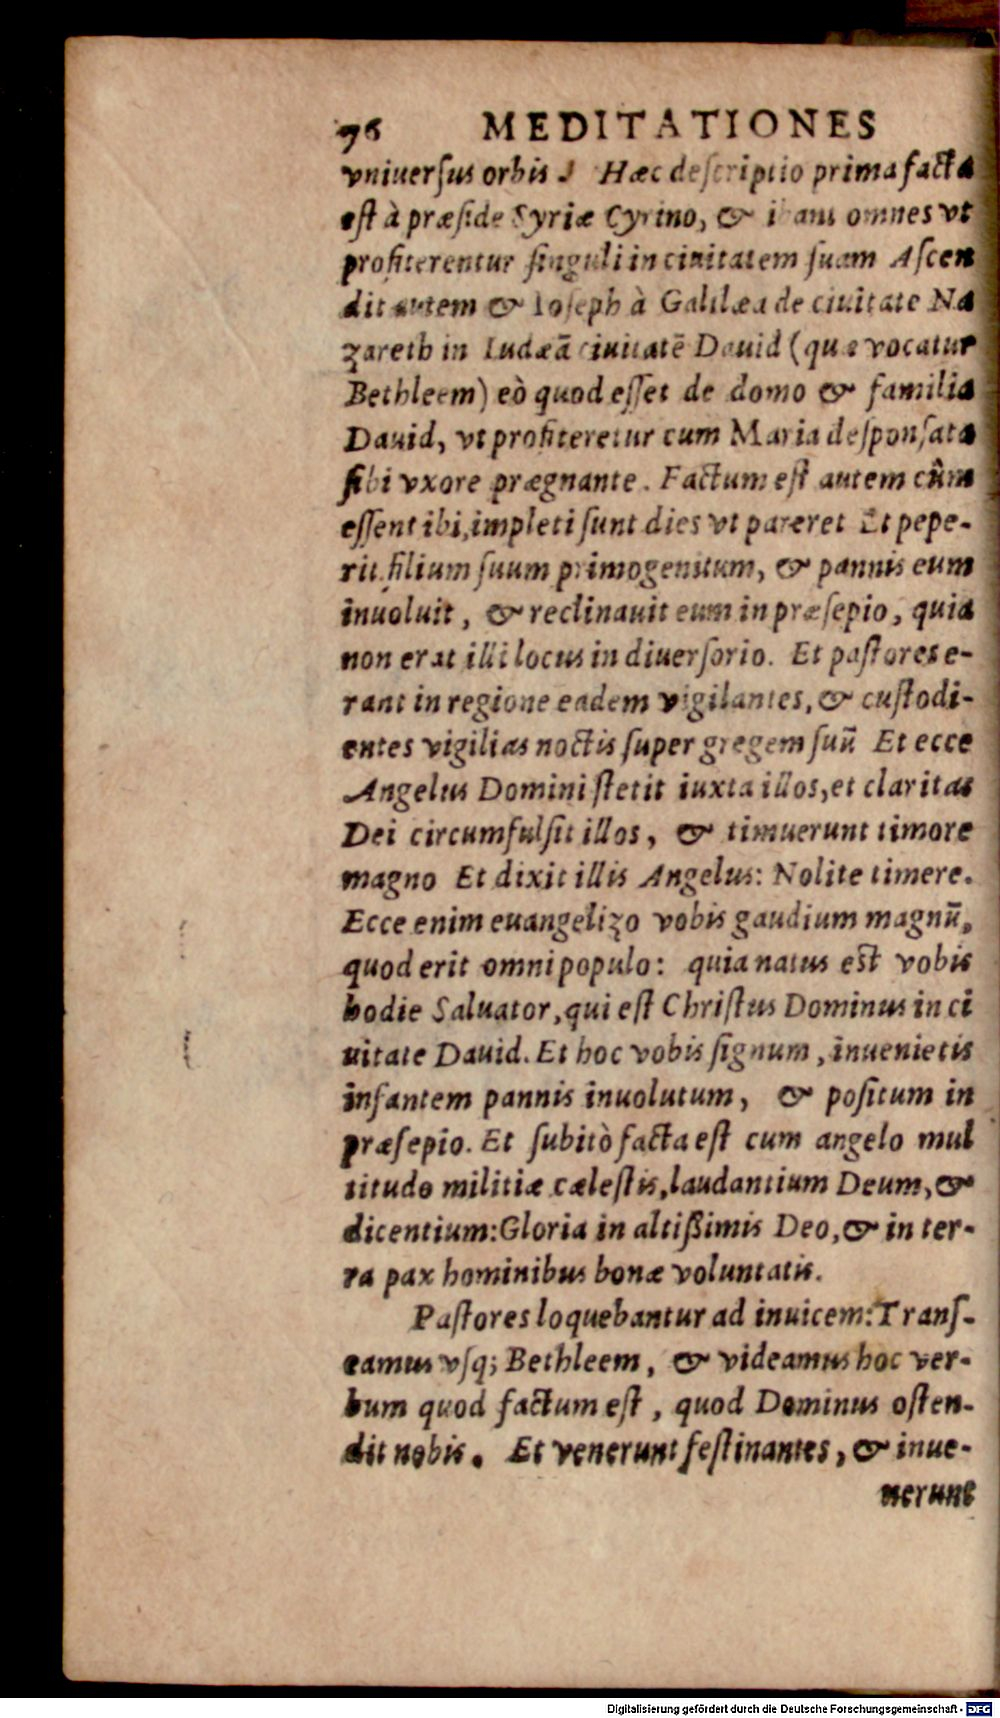 76 MEDITATIONES
vniuerſus orbis. Hæc deſcriptio prima facta
eſt à præſide Syriæ Cyrino, & ibant omnes vt
profiterentur ſinguli in ciuitatem ſuam Aſcen
dit autem & Ioſeph à Galilæa de ciuitate Na
zareth in Iudæā ciuitatē Dauid (quæ vocatur
Bethleem) eò quod eſſet de domo & familia
Dauid, vt profiteretur cum Maria deſponſata
ſibi vxore prægnante. Factum eſt autem cùm
eſſent ibi, impleti ſunt dies vt pareret Et pepe-
rit filium ſuum primogenitum, & pannis eum
inuoluit, & reclinauit eum in præſepio, quia
non erat illi locus in diuerſorio. Et paſtores e-
rant in regione eadem vigilantes, & cuſtodi-
entes vigilias noctis ſuper gregem ſuū Et ecce
Angelus Domini ſtetit iuxta illos, et claritas
Dei circumfulſit illos, & timuerunt timore
magno Et dixit illis Angelus: Nolite timere.
Ecce enim euangelizo vobis gaudium magnū,
quod erit omni populo: quia natus eſt vobis
hodie Saluator, qui eſt Chriſtus Dominus in ci
uitate Dauid. Et hoc vobis ſignum, inuenietis
infantem pannis inuolutum, & poſitum in
præſepio. Et ſubitò facta eſt cum angelo mul
titudo militiæ cæleſtis, laudantium Deum, &
dicentium: Gloria in altißimis Deo, & in ter-
ra pax hominibus bonæ voluntatis.
Paſtores loquebantur ad inuicem: Tranſ-
eamus vſq; Bethleem, & videamus hoc ver-
bum quod factum eſt, quod Dominus oſten-
dit nobis. Et venerunt feſtinantes, & inue-
nerunt
Digitalisierung gefördert durch die Deutsche Forschungsgemeinschaft - DFG